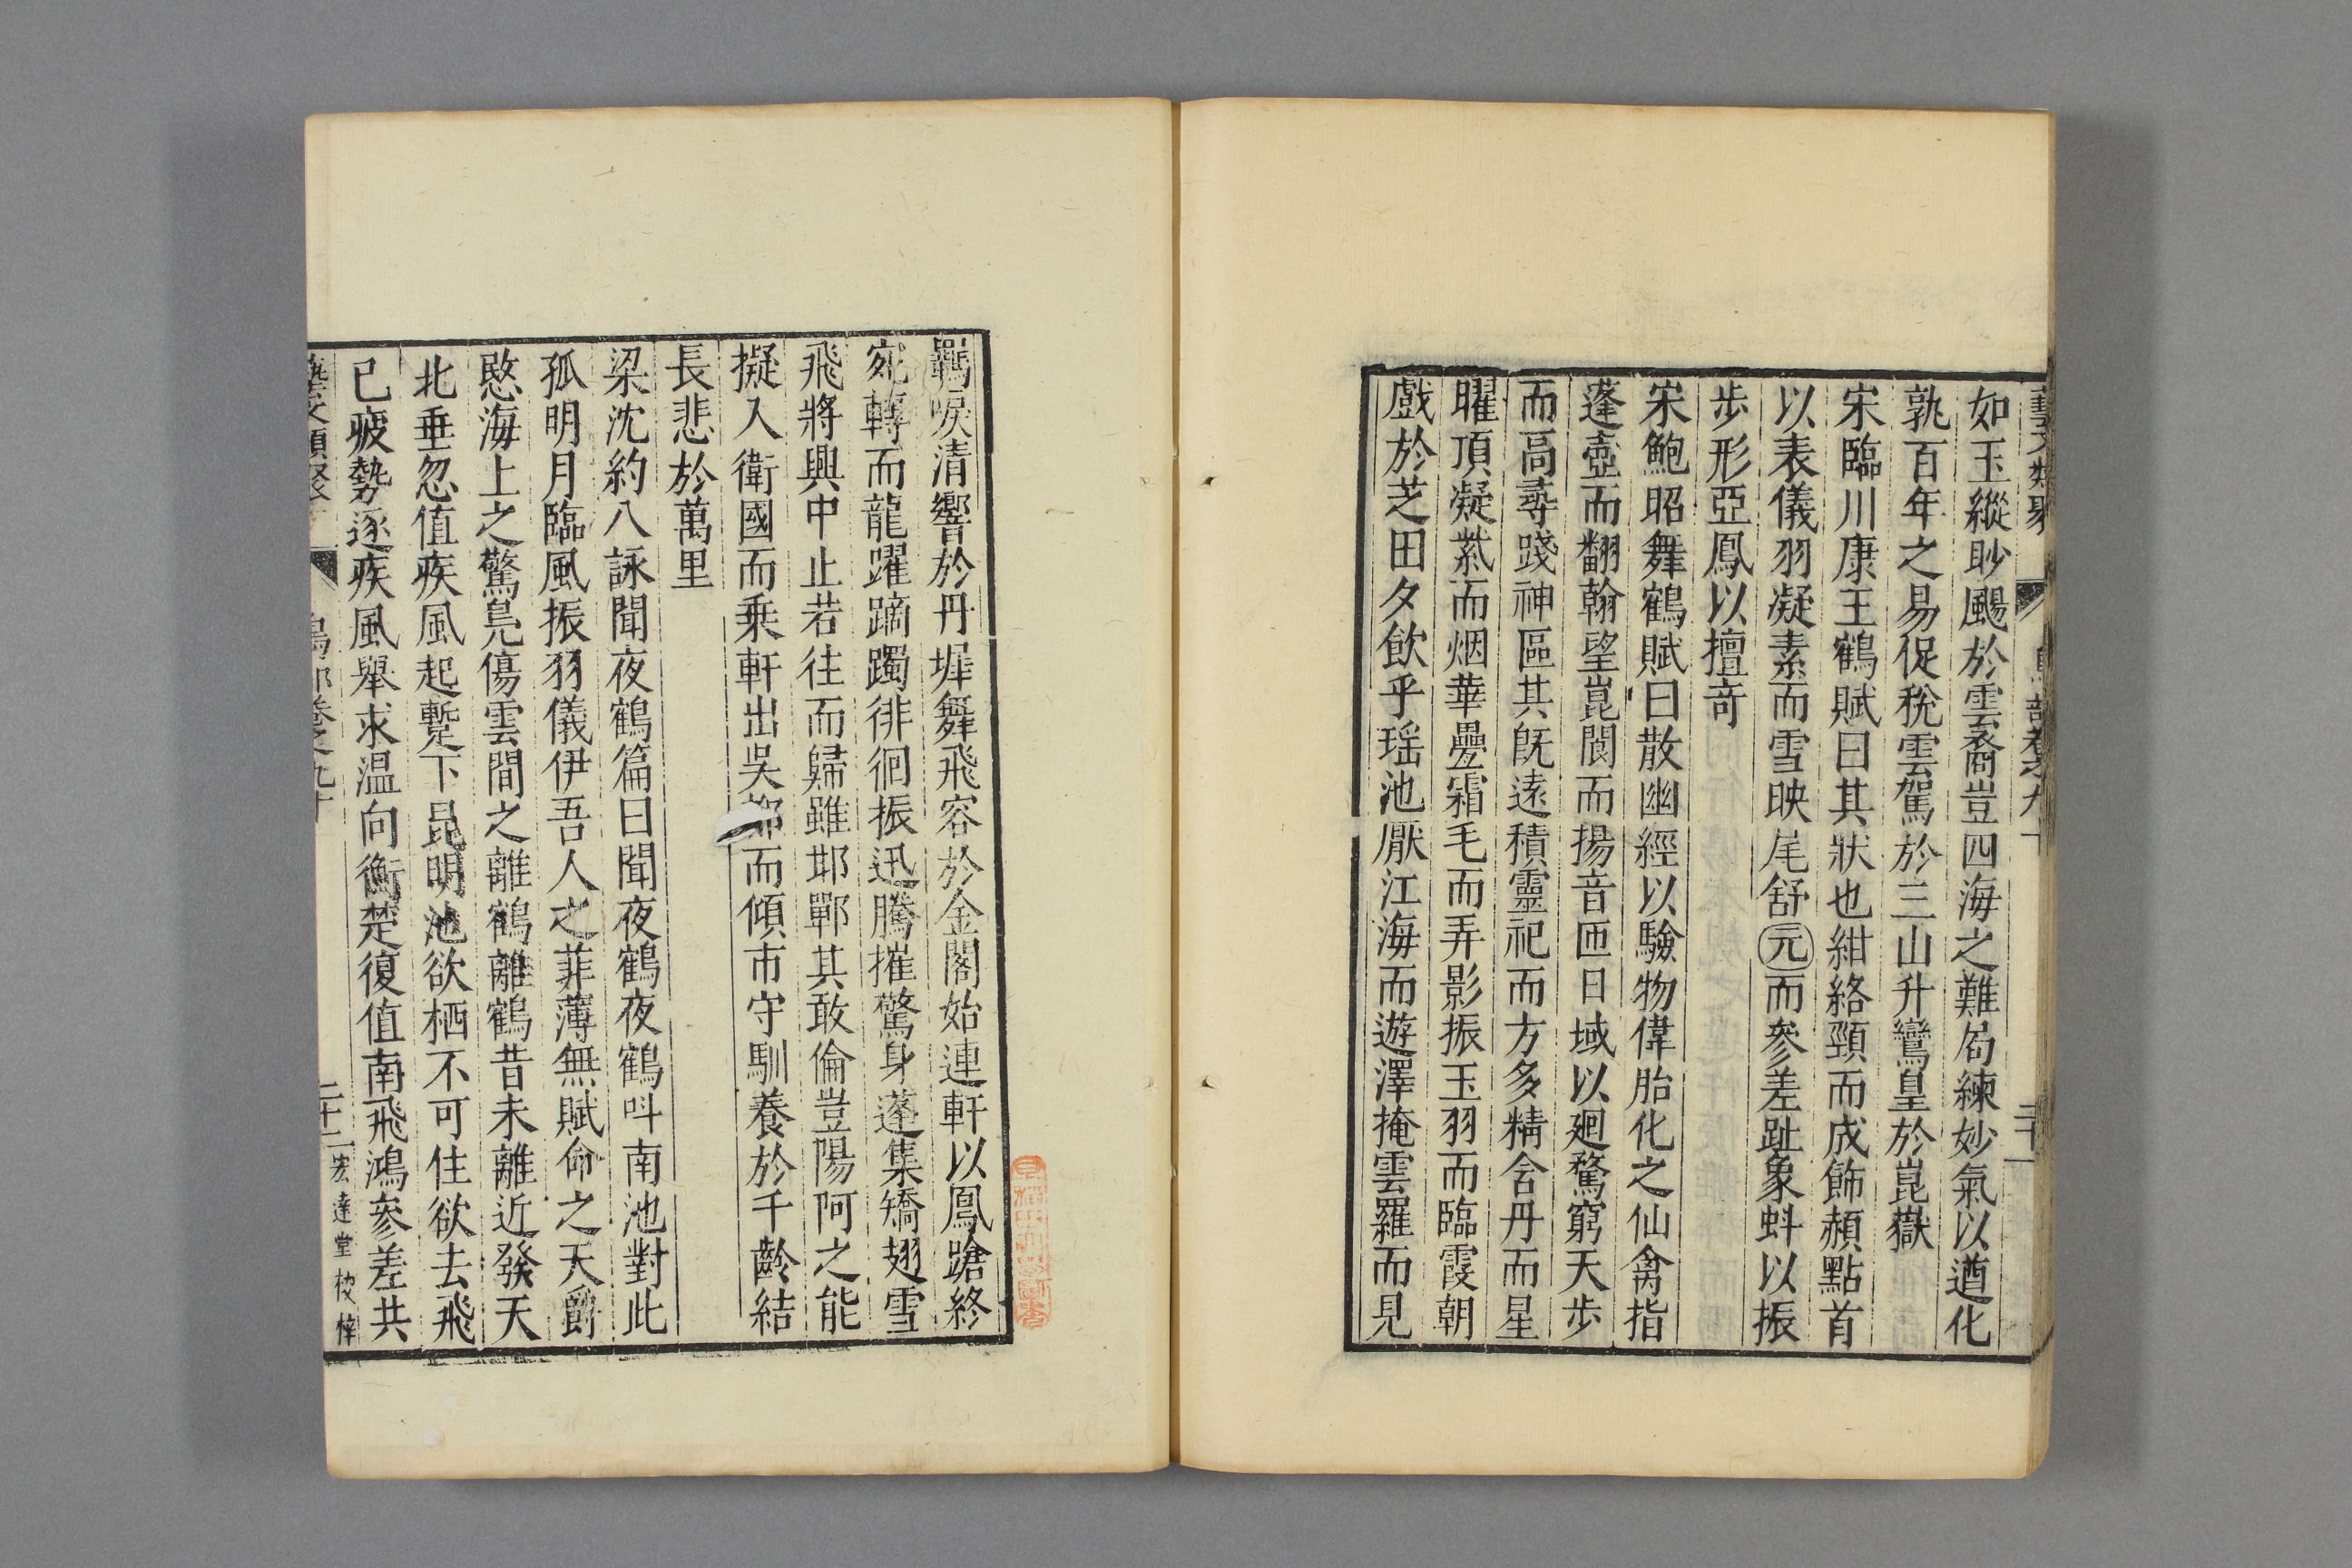 藝文類聚 鳥部卷之九十 二十一
如玉縱眇飈於雲裔豈四海之難局練妙氣以遒化
孰百年之易促稅雲駕於三山升鸞皇於崑嶽
宋臨川康王鶴賦曰其狀也紺絡頸而成飾赬點首
以表儀羽凝素而雪映尾舒元而參差趾象蚪以振
步形亞鳳以擅奇
宋鮑昭舞鶴賦曰散幽經以驗物偉胎化之仙禽指
蓬壺而翻翰望崑閬而揚音匝日域以廻騖窮天步
而高尋踐神區其旣遠積靈祀而方多精含丹而星
曜頂凝紫而烟華疊霜毛而弄影振玉羽而臨霞朝
戲於芝田夕飲乎瑶池厭江海而遊澤掩雲羅而見
羈唳清響於丹墀舞飛容於金閣始連軒以鳳蹌終
宛轉而龍躍躑躅徘徊振迅騰摧驚身蓬集矯翅雪
飛將興中止若往而歸雖邯鄲其敢倫豈陽阿之能
擬入衛國而乗軒出吳都而傾市守馴養於千齡結
長悲於萬里
梁沈約八詠聞夜鶴篇曰聞夜鶴夜鶴呌南池對此
孤明月臨風振羽儀伊吾人之菲薄無賦命之天爵
愍海上之驚鳧傷雲間之離鶴離鶴昔未離近發天
北垂忽值疾風起蹔下昆明池欲栖不可住欲去飛
已疲勢逐疾風舉求温向衡楚復值南飛鴻參差共
藝文類聚 鳥部卷之九十 二十二 宏達堂校梓